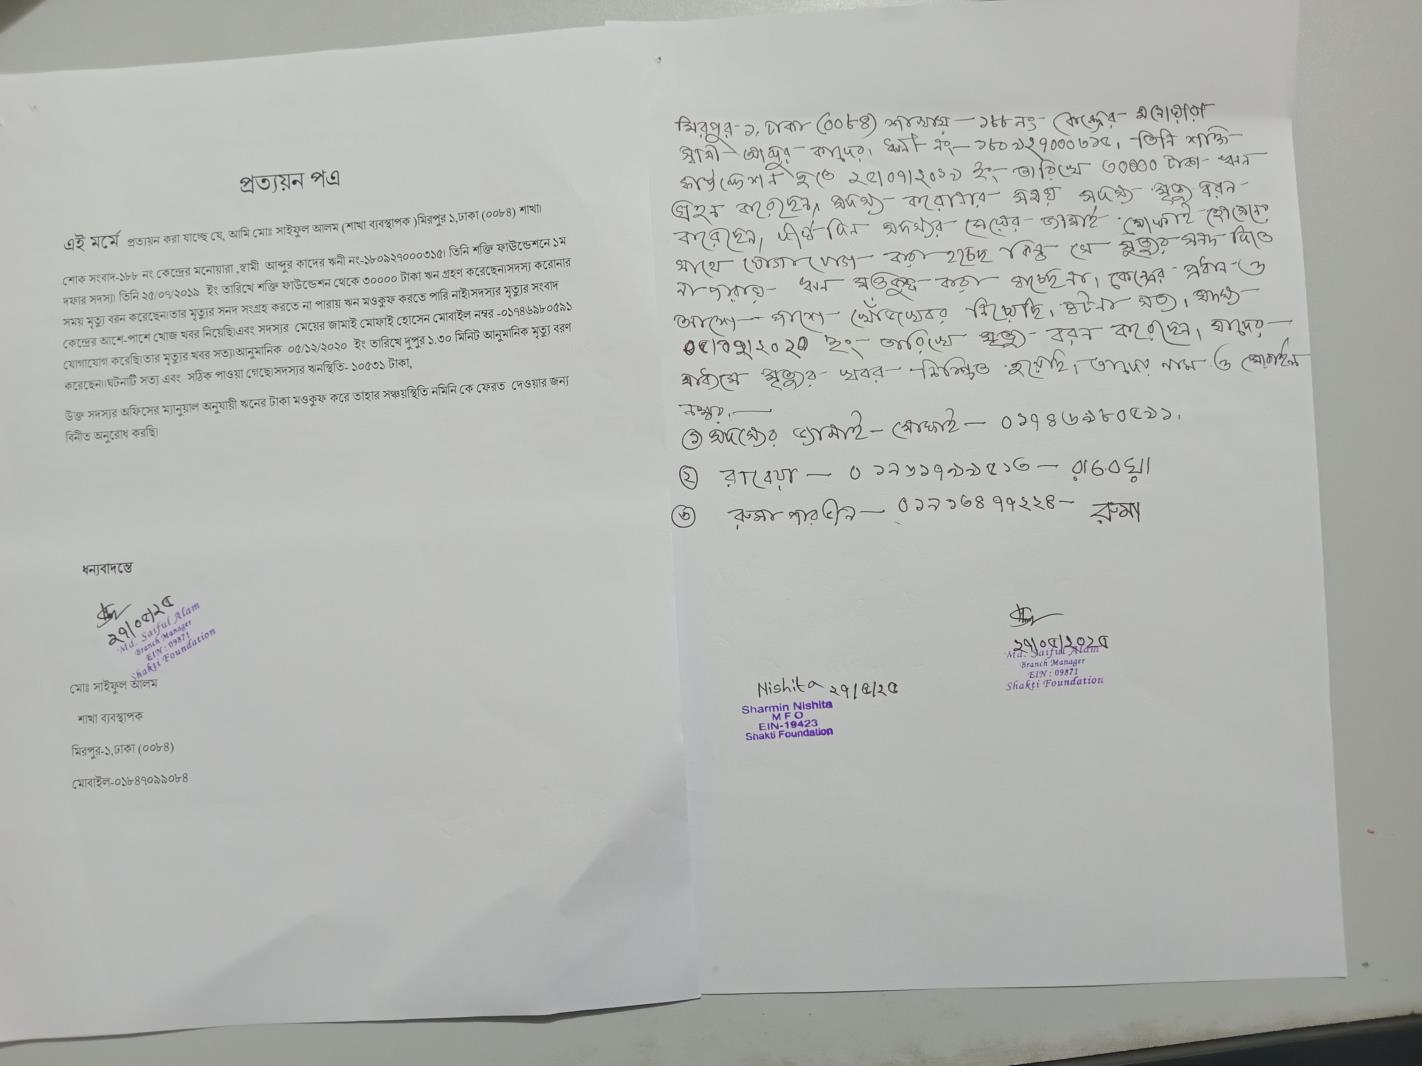 প্রত্যয়ন পএ
এই মর্মে প্রত্যয়ন করা যাচ্ছে যে, আমি মোঃ সাইফুল আলম (শাখা ব্যবস্থাপক )মিরপুর ১,ঢাকা (০০৮৪) শাখা।
শোক সংবাদ-১৮৮ নং কেন্দ্রের মনোয়ারা ,স্বামী আব্দুর কাদের ঋনী নং-১৮০৯২৭০০০৩১৫। তিনি শক্তি ফাউন্ডেশনে ১ম
দফার সদস্য। তিনি ২৫/০৭/২০১৯ ইং তারিখে শক্তি ফাউন্ডেশন থেকে ৩০০০০ টাকা ঋন গ্রহণ করেছেন।সদস্য করোনার
সময় মৃত্যু বরন করেছেন।তার মৃত্যুর সনদ সংগ্রহ করতে না পারায় ঋন মওকুফ করতে পারি নাই।সদস্যর মৃত্যুর সংবাদ
কেন্দ্রের আশে-পাশে খোজ খবর নিয়েছি।এবং সদস্যর মেয়ের জামাই মোফাই হোসেন মোবাইল নম্বর -০১৭৪৬৯৮০৫৯১
যোগাযোগ করেছি।তার মৃত্যুর খবর সত্য।আনুমানিক ০৫/১২/২০২০ ইং তারিখে দুপুর ১.৩০ মিনিট আনুমানিক মৃত্যু বরণ
করেছেন।ঘটনাটি সত্য এবং সঠিক পাওয়া গেছে।সদস্যর ঋনস্থিতি- ১০৫৩১ টাকা,
উক্ত সদস্যর অফিসের ম্যানুয়াল অনুযায়ী ঋনের টাকা মওকুফ করে তাহার সঞ্চয়স্থিতি নমিনি কে ফেরত দেওয়ার জন্য
বিনীত অনুরোধ করছি।
ধন্যবাদান্তে
২৭/০৫/২৫
Md. Saiful Alam
Branch Manager
EIN : 09871
Shakti Foundation
মোঃ সাইফুল আলম
শাখা ব্যবস্থাপক
মিরপুর-১,ঢাকা (০০৮৪)
মোবাইল-০১৮৪৭০৯৯০৮৪
মিরপুর-১, ঢাকা (০০৮৪) শাখায় - ১৮৮ নং- কেন্দ্রের- মনোয়ারা
স্বামী- আব্দুর- কাদের, ঋনী নং- তিনি শক্তি
ফাউন্ডেশন হতে ২৫/০৭/২০১৯ ইং- তারিখে ৩০০০০ টাকা- ঋন
গ্রহন করেছেন, সদস্য- করোনার- সময় সদস্য মৃত্যু বরন-
করেছেন, দীর্ঘ দিন সদস্যর মেয়ের জামাই মোফাই হোসেনের
সাথে যোগাযোগ- করা হচ্ছে কিন্তু সে মৃত্যুর সনদ দিতে
না পারায়- ঋন মওকুফ- করা যাচ্ছে না, কেন্দ্রের প্রধান- ও
আশে- পাশে- খোঁজখবর নিয়েছি, ঘটনা সত্য, সদস্য
০৫/১২/২০২০ ইং- তারিখে মৃত্যু- বরন করেছেন, যাদের-
মাধ্যমে মৃত্যুর- খবর- নিশ্চিত হয়েছি, তাদের নাম ও মোবাইল
নম্বর,-
① সদস্যের জামাই- মোফাই- ০১৭৪৬৯৮০৫৯১,
② রাবেয়া - ০১৭৬১৭৯৯৫১৩ - রাবেয়া
③ রুমা পারভীন- ০১৭১৩৪৭৭২২৪- রুমা
২৭/০৫/২০২৫
Md. Saiful Alam
Branch Manager
EIN : 09871
Shakti Foundation
Nishita ২৭/৫/২৫
Sharmin Nishita
MFO
EIN-19423
Shakti Foundation